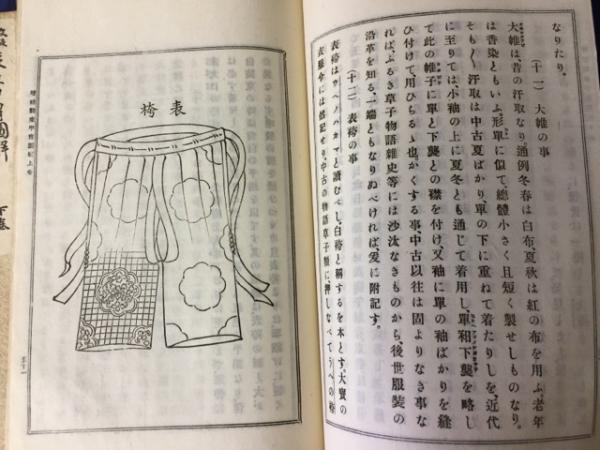 なりたり。
(十一) 大帷の事
大帷は、昔の汗取なり、通例冬春は白布、夏秋は紅の布を用ふ、老年
は香染ともいふ、形單に似て、總體小さく且短く製せしものなり、
そも〱汗取は中古夏ばかり、單の下に重ねて着たりしを、近代
に至りては小袖の上に夏冬とも通じて着用し、單和下襲を略し
て此の帷子に單と下襲との襟を付け、又袖に單の袖ばかりを縫
ひ付けて、用ひらるゝ也、かくする事、中古以往は固よりなき事な
れば、ふるき草子物語雜史等には沙汰なきものから、後世服裝の
沿革を知る、一端ともなりぬべければ、爰に附記す。
(十二) 表袴の事
表袴はウヘノハカマと讀むべし、白袴と稱するを本とす、大寶の
衣服令には記せり、中古の物語草子類に押しなべてうへの袴
表袴
圖解上卷
五十一
圖解